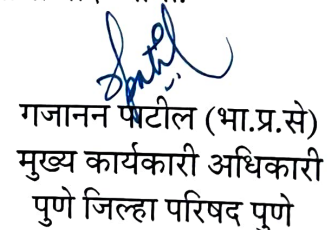 गजानन पाटील (भा.प्र.से)
मुख्य कार्यकारी अधिकारी
पुणे जिल्हा परिषद पुणे